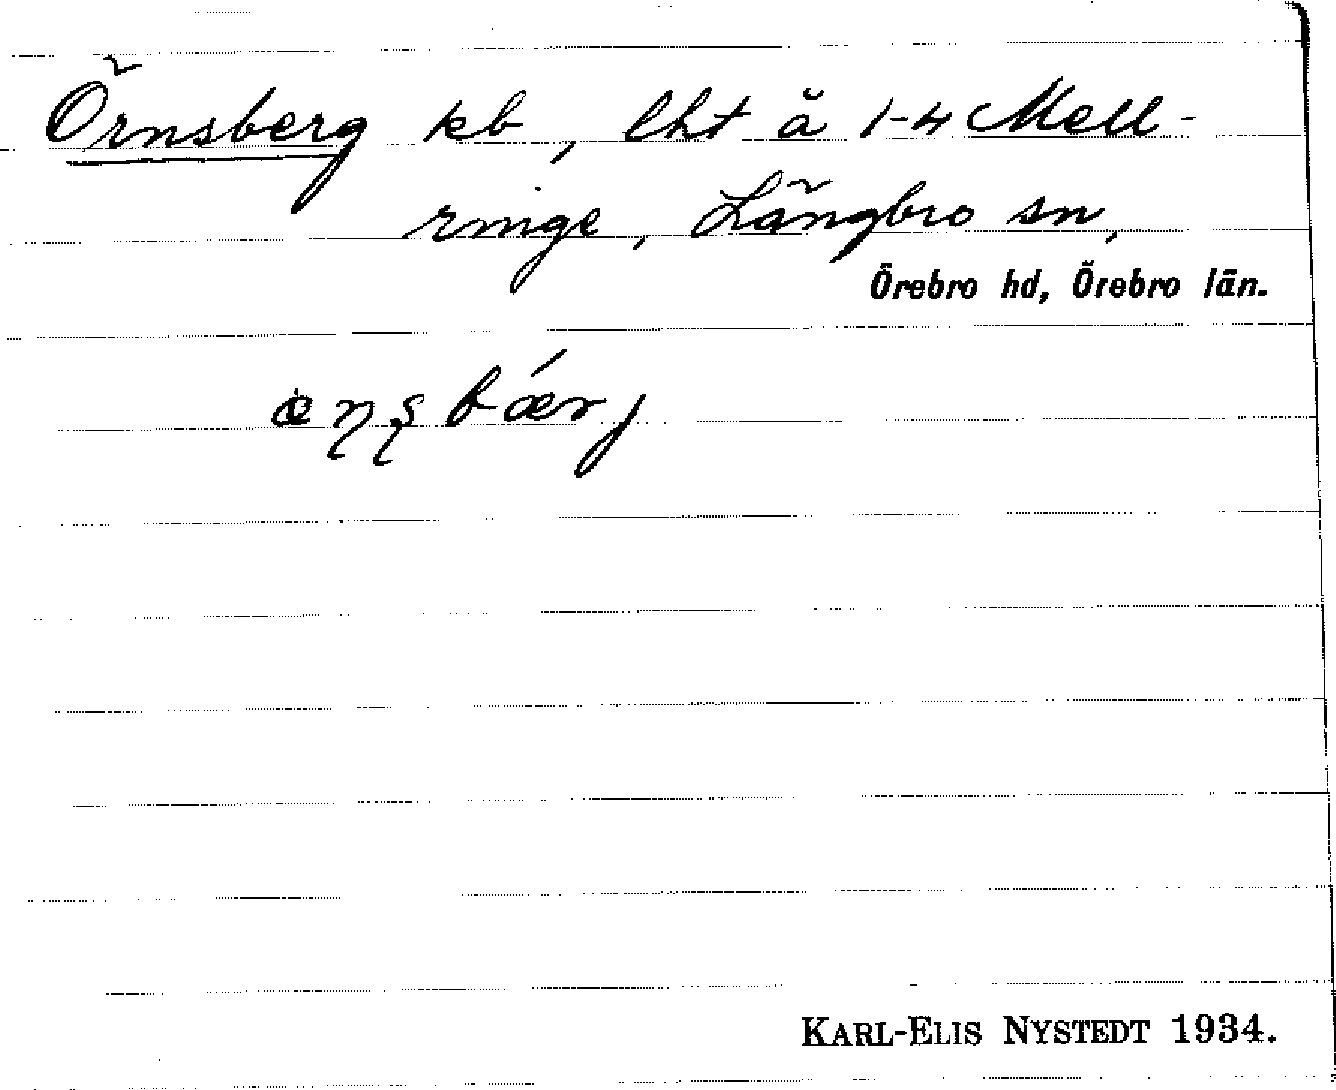 Örnsberg kb, lht å 1-4 Mell-
ringe, Längbro sn,
Örebro hd, Örebro län.
œṇṣbǽrj
KARL-ELIS NYSTEDT 1934.